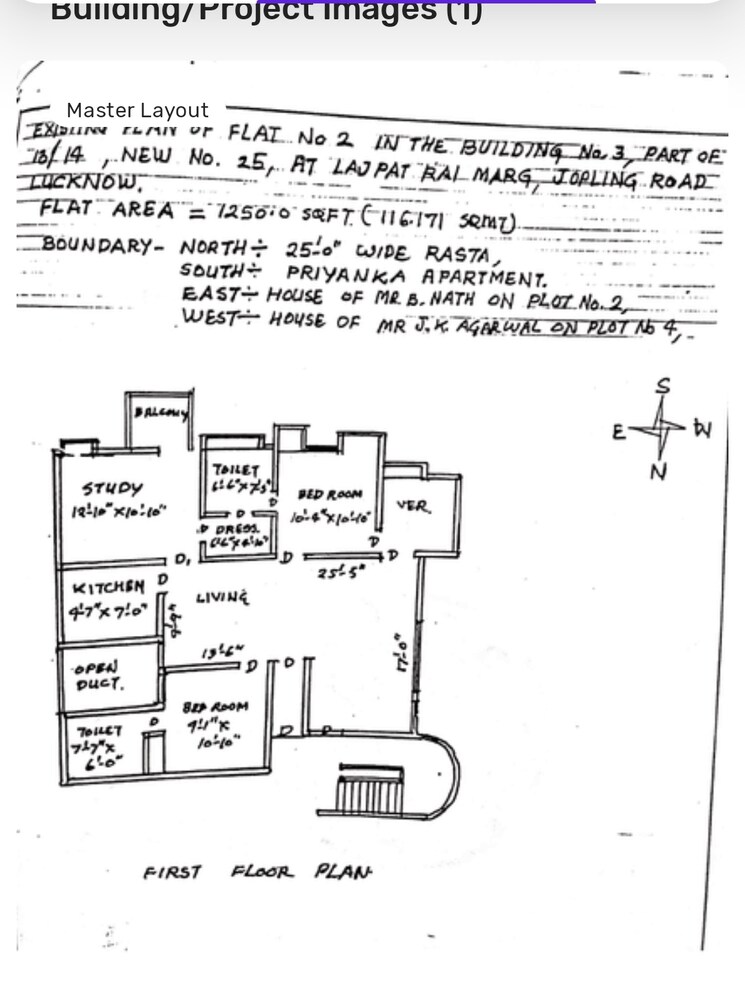 Building/Project Images (1)
Master Layout
EXISTING PLAN OF FLAT No 2 IN THE BUILDING No. 3, PART OF
13/14, NEW No. 25, AT LAJPAT RAI MARG, JOPLING ROAD
LUCKNOW.
FLAT AREA = 1250.0 SQFT. (116.171 SQMT)
BOUNDARY- NORTH÷ 25'-0" WIDE RASTA,
SOUTH÷ PRIYANKA APARTMENT.
EAST÷ HOUSE OF MR B. NATH ON PLOT No. 2,
WEST÷ HOUSE OF MR J.K. AGARWAL ON PLOT No 4,-
S
E W
N
BALCONY
STUDY
12'-10" X 10'-10"
TOILET
6'-6" X 7'-5"
D
D
D DRESS.
BED ROOM
10'-4" X 10'-10"
D
VER.
D
D,
D
25'-5"
KITCHEN
4'-7" X 7'-0"
D
LIVING
9'-9"
13'-6"
17'-0"
OPEN
DUCT.
D
D
BED ROOM
9'-1" X
10'-10"
TOILET
7'-7" X
6'-0"
D
D
D
FIRST FLOOR PLAN